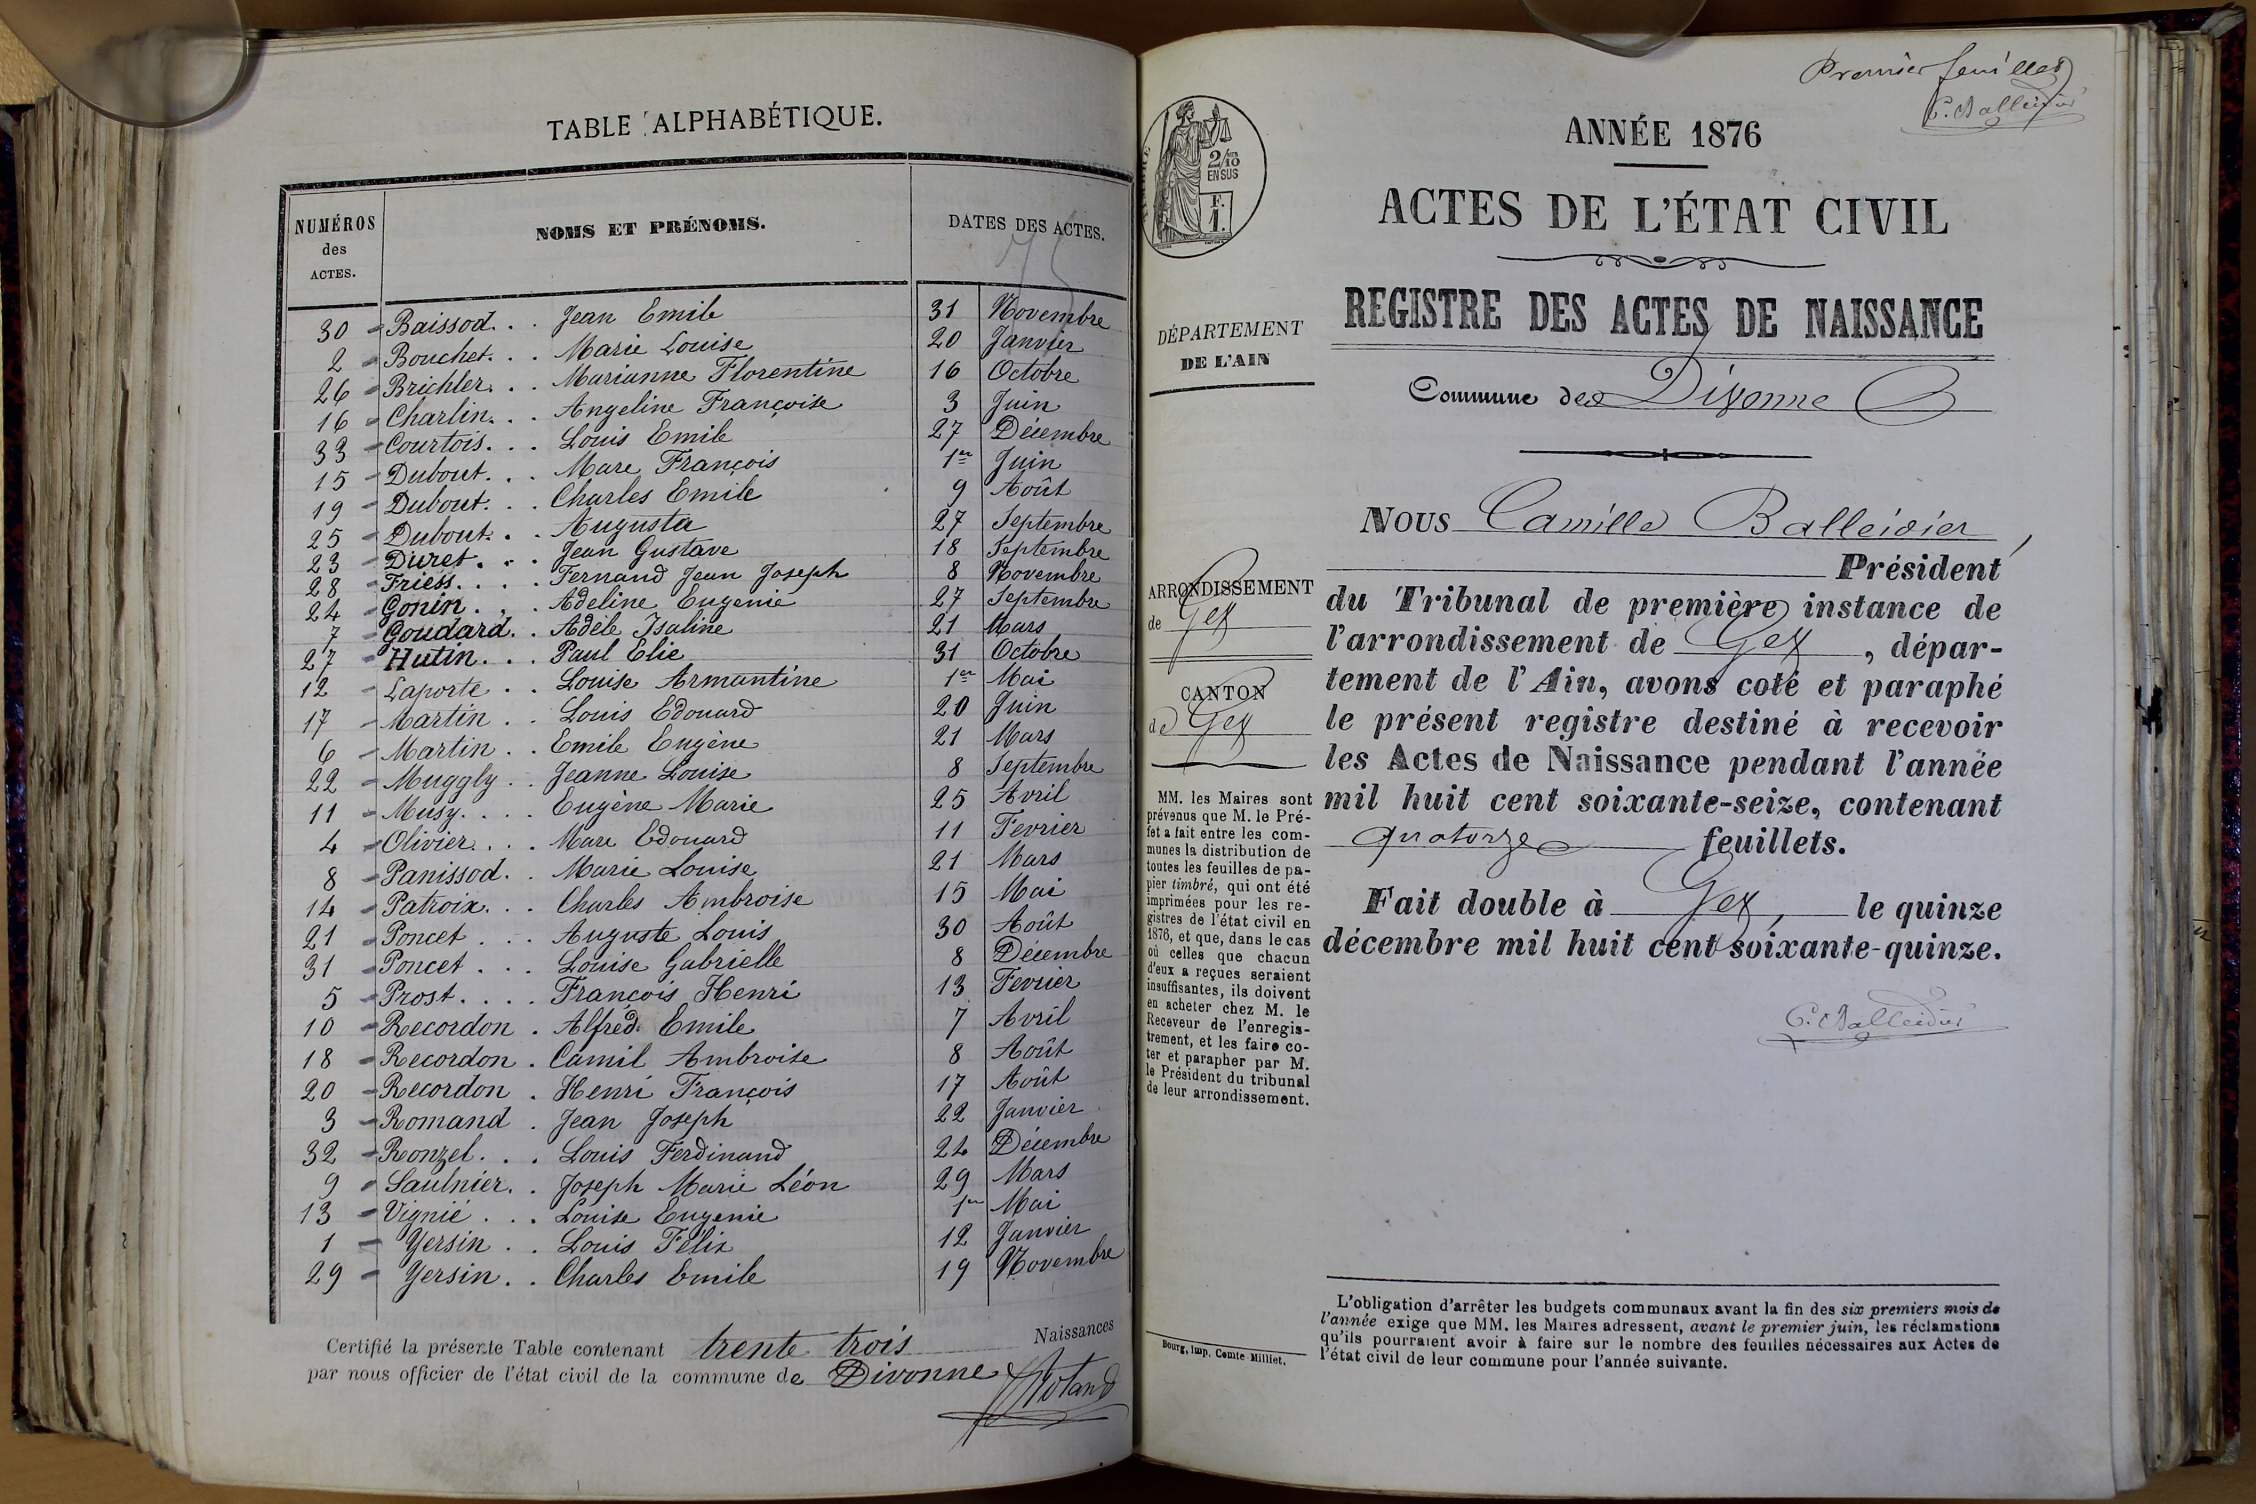 TABLE ALPHABÉTIQUE.
NUMÉROS
des
ACTES.
NOMS ET PRÉNOMS.
DATES DES ACTES.
30 Baissod. . . Jean Emile 31 Novembre
2 Bouchet. . . Marie Louise 20 Janvier
26 Brichler. . . Marianne Florentine 16 Octobre
16 Charlin. . . Angeline Françoise 3 Juin
33 Courtois. . . Louis Emile 27 Décembre
15 Dubout. . . Marc François 1er Juin
19 Dubout. . . Charles Emile 9 Août
25 Dubout. . . Augusta 27 Septembre
23 Duret. . . Jean Gustave 18 Septembre
28 Friess. . . . Fernand Jean Joseph 8 Novembre
24 Gonin. . . Adeline Eugenie 27 Septembre
7 Goudard. . Adèle Isaline 21 Mars
27 Hutin. . . Paul Elie 31 Octobre
12 Laporte . . Louise Armantine 1er Mai
17 Martin . . Louis Edouard 20 Juin
6 Martin . . Emile Eugène 21 Mars
22 Muggly . . Jeanne Louise 8 Septembre
11 Musy. . . . Eugène Marie 25 Avril
4 Olivier. . . . Marc Edouard 11 Fevrier
8 Panissod. . Marie Louise 21 Mars
14 Patroix. . . Charles Ambroise 15 Mai
21 Poncet . . . Auguste Louis 30 Août
31 Poncet . . . Louise Gabrielle 8 Décembre
5 Prost. . . . François Henri 13 Fevrier
10 Recordon . Alfred Emile 7 Avril
18 Recordon . Camil Ambroise 8 Août
20 Recordon . Henri François 17 Août
3 Romand . Jean Joseph 22 Janvier
32 Ronzel. . . Louis Ferdinand 24 Décembre
9 Saulnier. . Joseph Marie Léon 29 Mars
13 Vignié . . . Louise Eugenie 1er Mai
1 Yersin . . Louis Félix 12 Janvier
29 Yersin. . Charles Emile 19 Novembre
Certifié la présente Table contenant trente trois Naissances
par nous officier de l'état civil de la commune de Divonne
Premier feuillet
C. Balleidier
2/10
EN SUS
F.
1.
ANNÉE 1876
ACTES DE L'ÉTAT CIVIL
REGISTRE DES ACTES DE NAISSANCE
DÉPARTEMENT
DE L'AIN
Commune de Divonne
ARRONDISSEMENT
de Gex
CANTON
de Gex
MM. les Maires sont
prévenus que M. le Pré-
fet a fait entre les com-
munes la distribution de
toutes les feuilles de pa-
pier timbré, qui ont été
imprimées pour les re-
gistres de l'état civil en
1876, et que, dans le cas
où celles que chacun
d'eux a reçues seraient
insuffisantes, ils doivent
en acheter chez M. le
Receveur de l'enregis-
trement, et les faire co-
ter et parapher par M.
le Président du tribunal
de leur arrondissement.
Bourg, Imp. Comte-Milliet.
Nous Camille Balleidier,
Président
du Tribunal de première instance de
l'arrondissement de Gex, dépar-
tement de l'Ain, avons coté et paraphé
le présent registre destiné à recevoir
les Actes de Naissance pendant l'année
mil huit cent soixante-seize, contenant
quatorze feuillets.
Fait double à Gex, le quinze
décembre mil huit cent soixante-quinze.
C. Balleidier
L'obligation d'arrêter les budgets communaux avant la fin des six premiers mois de
l'année exige que MM. les Maires adressent, avant le premier juin, les réclamations
qu'ils pourraient avoir à faire sur le nombre des feuilles nécessaires aux Actes de
l'état civil de leur commune pour l'année suivante.